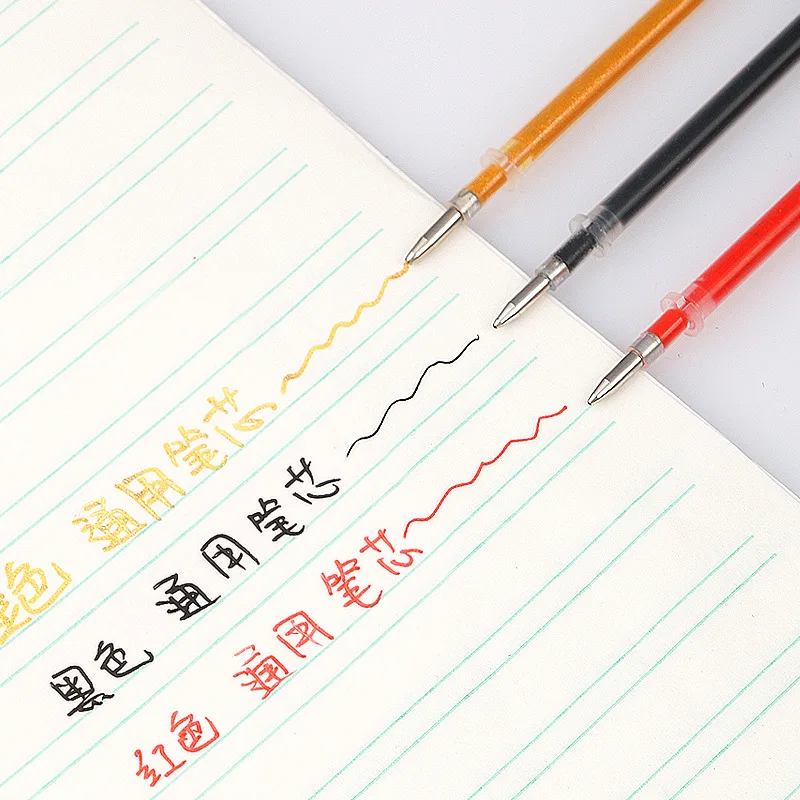 色 通用笔芯
黑色 通用笔芯
红色 通用笔芯